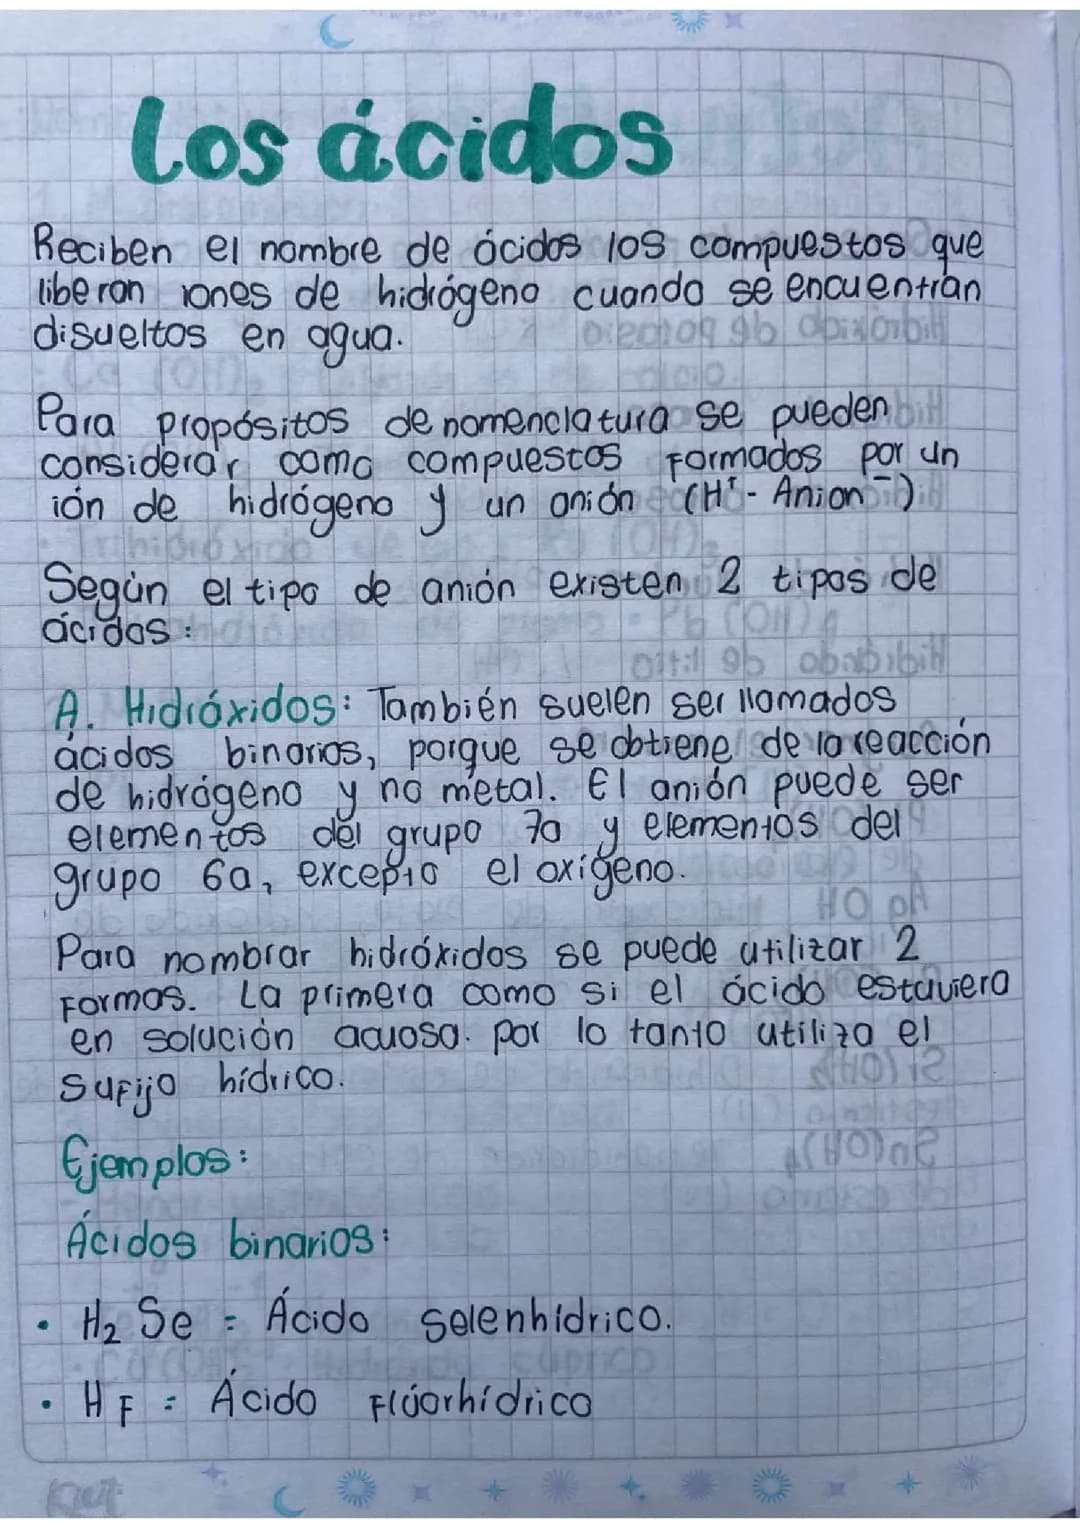 Los ácidos
Reciben el nombre de ácidos los compuestos que
liberan iones de hidrógeno cuando se encuentran
disueltos en agua.
Para propósitos de nomenclatura se pueden
considerar como compuestos formados por un
ión de hidrógeno y un anión (H⁺- Anion⁻)
Según el tipo de anión existen 2 tipos de
ácidos:
A. Hidróxidos: También suelen ser llamados
ácidos binarios, porque se obtiene de la reacción
de hidrógeno y no metal. El anión puede ser
elementos del grupo 7a y elementos del
grupo 6a, excepto el oxígeno.
Para nombrar hidróxidos se puede utilizar 2
Formas. La primera como si el ácido estuviera
en solución acuosa. por lo tanto utiliza el
sufijo hídrico.
Ejemplos:
Ácidos binarios:
• H₂ Se = Ácido selenhídrico.
• HF = Ácido Flúorhídrico